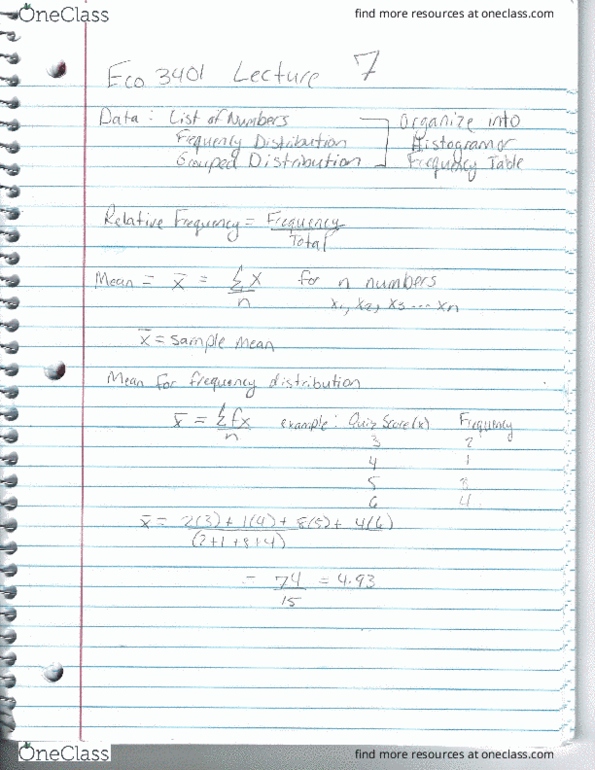 OneClass
find more resources at oneclass.com
Eco 3401 Lecture 7
Data: List of Numbers
Fequenly Distribution
Grouped Distribution
Organize into
Histogram or
Frequency Table
Relative Frequency = Frequency
Total
Mean = x̄ = Σx for n numbers
n x₁, x₂, x₃ ... xₙ
x̄ = sample mean
Mean for frequency distribution
x̄ = Σfx example: Quiz Score(x) Frequency
n
3 2
4 1
5 8
6 4
x̄ = 2(3) + 1(4) + 8(5) + 4(6)
(2+1+8+4)
= 74 = 4.93
15
OneClass
find more resources at oneclass.com